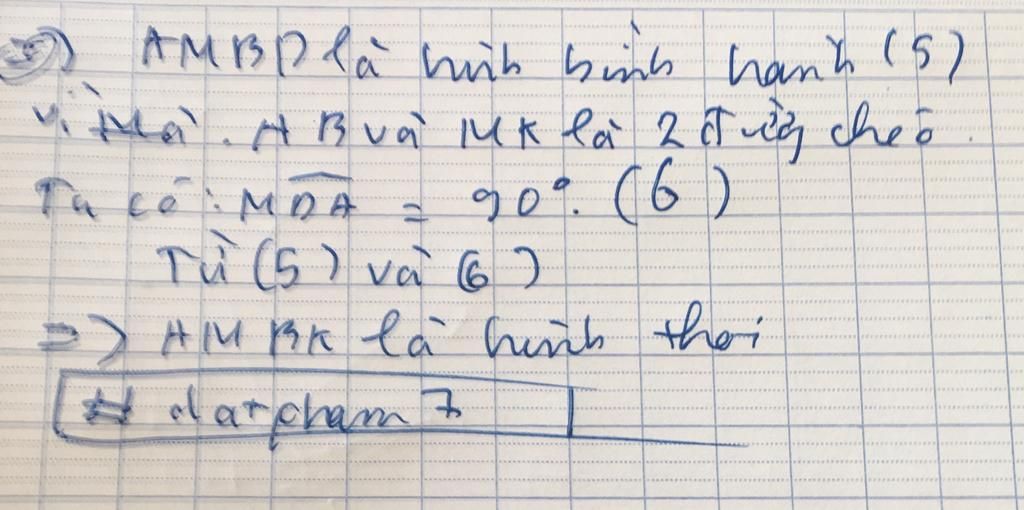 AMBD là hình bình hành (5)
vì Mà. AB và MK là 2 đường chéo.
Ta có: MDA = 90°. (6)
Từ (5) và (6)
=> AMBK là hình thoi
# datpham 7